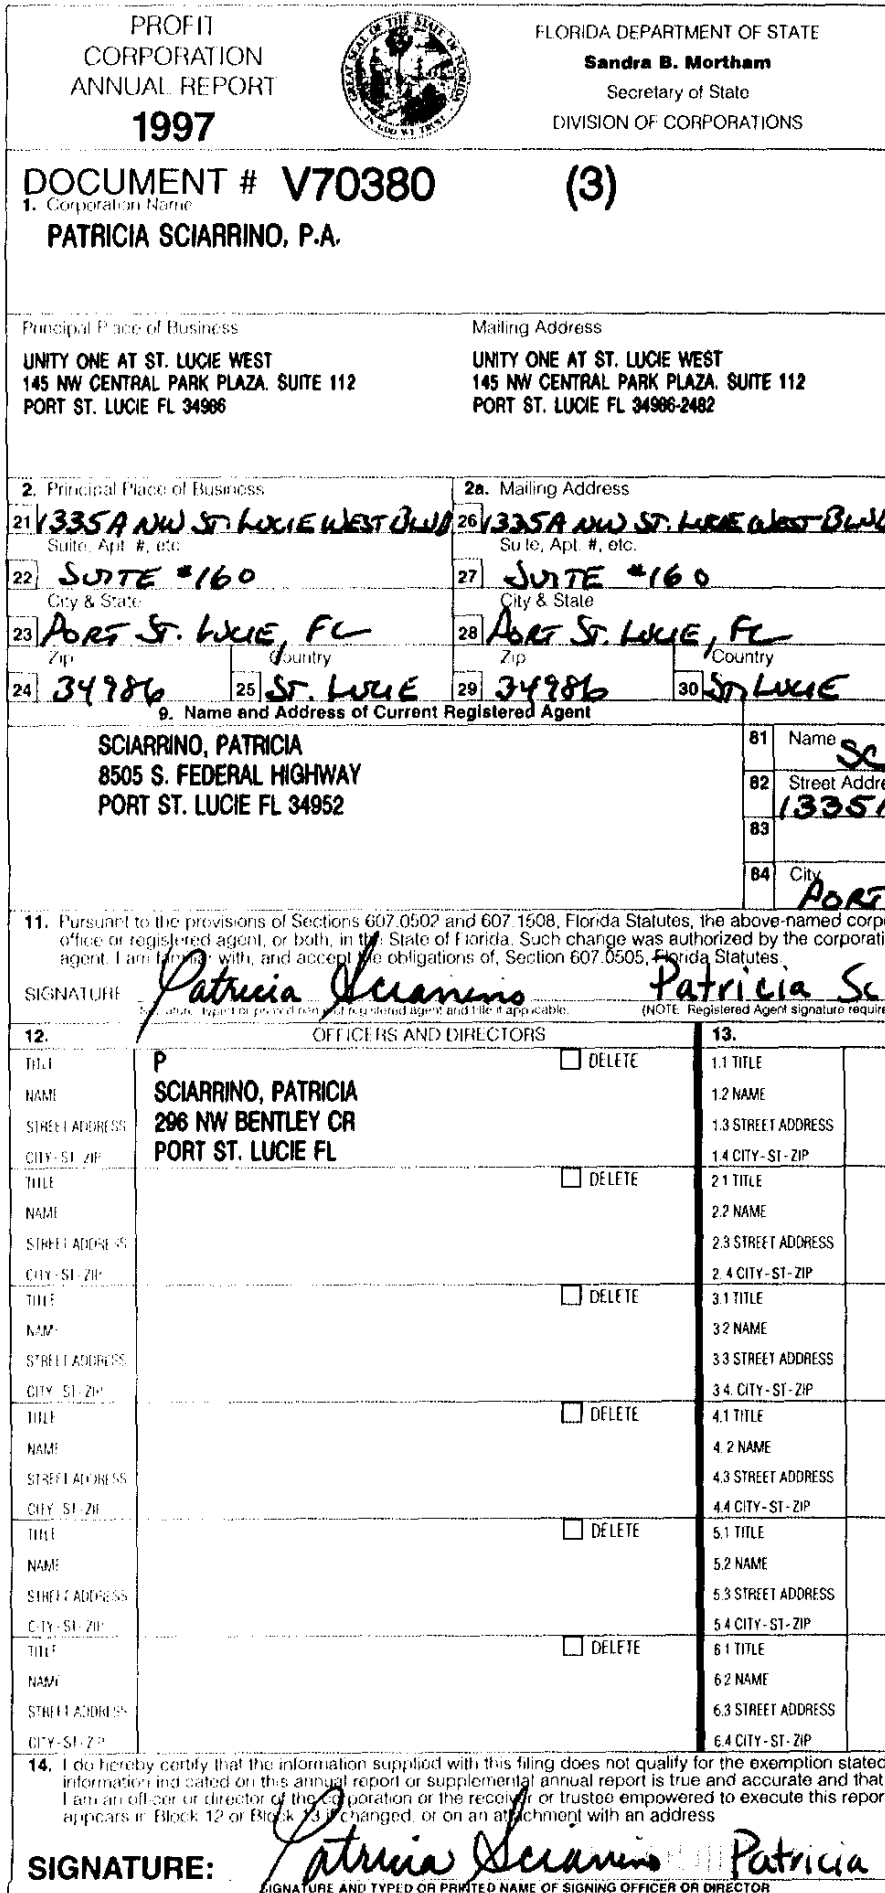 PROFIT
CORPORATION
ANNUAL REPORT
1997
GREAT SEAL OF THE STATE OF FLORIDA
IN GOD WE TRUST
FLORIDA DEPARTMENT OF STATE
Sandra B. Mortham
Secretary of State
DIVISION OF CORPORATIONS
DOCUMENT # V70380 (3)
1. Corporation Name
PATRICIA SCIARRINO, P.A.
Principal Place of Business
UNITY ONE AT ST. LUCIE WEST
145 NW CENTRAL PARK PLAZA, SUITE 112
PORT ST. LUCIE FL 34986
Mailing Address
UNITY ONE AT ST. LUCIE WEST
145 NW CENTRAL PARK PLAZA, SUITE 112
PORT ST. LUCIE FL 34986-2482
2. Principal Place of Business
21 1335A NW ST. LUCIE WEST BLVD
Suite, Apt. #, etc.
22 SUITE #160
City & State
23 PORT ST. LUCIE, FL
Zip Country
24 34986 25 ST. LUCIE
2a. Mailing Address
26 1335A NW ST. LUCIE WEST BLVD
Suite, Apt. #, etc.
27 SUITE #160
City & State
28 PORT ST. LUCIE, FL
Zip Country
29 34986 30 ST. LUCIE
9. Name and Address of Current Registered Agent
SCIARRINO, PATRICIA
8505 S. FEDERAL HIGHWAY
PORT ST. LUCIE FL 34952
81 Name SC
82 Street Addre
1335A
83
84 City
PORT
11. Pursuant to the provisions of Sections 607.0502 and 607.1508, Florida Statutes, the above-named corp
office or registered agent, or both, in the State of Florida. Such change was authorized by the corporati
agent. I am familiar with, and accept the obligations of, Section 607.0505, Florida Statutes.
SIGNATURE Patricia Sciarrino Patricia Sc
Signature, typed or printed name of registered agent and title if applicable. (NOTE: Registered Agent signature require
12. OFFICERS AND DIRECTORS 13.
TITLE P DELETE 1.1 TITLE
NAME SCIARRINO, PATRICIA 1.2 NAME
STREET ADDRESS 296 NW BENTLEY CR 1.3 STREET ADDRESS
CITY-ST-ZIP PORT ST. LUCIE FL 1.4 CITY-ST-ZIP
TITLE DELETE 2.1 TITLE
NAME 2.2 NAME
STREET ADDRESS 2.3 STREET ADDRESS
CITY-ST-ZIP 2.4 CITY-ST-ZIP
TITLE DELETE 3.1 TITLE
NAME 3.2 NAME
STREET ADDRESS 3.3 STREET ADDRESS
CITY-ST-ZIP 3.4. CITY-ST-ZIP
TITLE DELETE 4.1 TITLE
NAME 4.2 NAME
STREET ADDRESS 4.3 STREET ADDRESS
CITY-ST-ZIP 4.4 CITY-ST-ZIP
TITLE DELETE 5.1 TITLE
NAME 5.2 NAME
STREET ADDRESS 5.3 STREET ADDRESS
CITY-ST-ZIP 5.4 CITY-ST-ZIP
TITLE DELETE 6.1 TITLE
NAME 6.2 NAME
STREET ADDRESS 6.3 STREET ADDRESS
CITY-ST-ZIP 6.4 CITY-ST-ZIP
14. I do hereby certify that the information supplied with this filing does not qualify for the exemption stated
information indicated on this annual report or supplemental annual report is true and accurate and that
I am an officer or director of the corporation or the receiver or trustee empowered to execute this repor
appears in Block 12 or Block 13 if changed, or on an attachment with an address
SIGNATURE: Patricia Sciarrino Patricia
SIGNATURE AND TYPED OR PRINTED NAME OF SIGNING OFFICER OR DIRECTOR